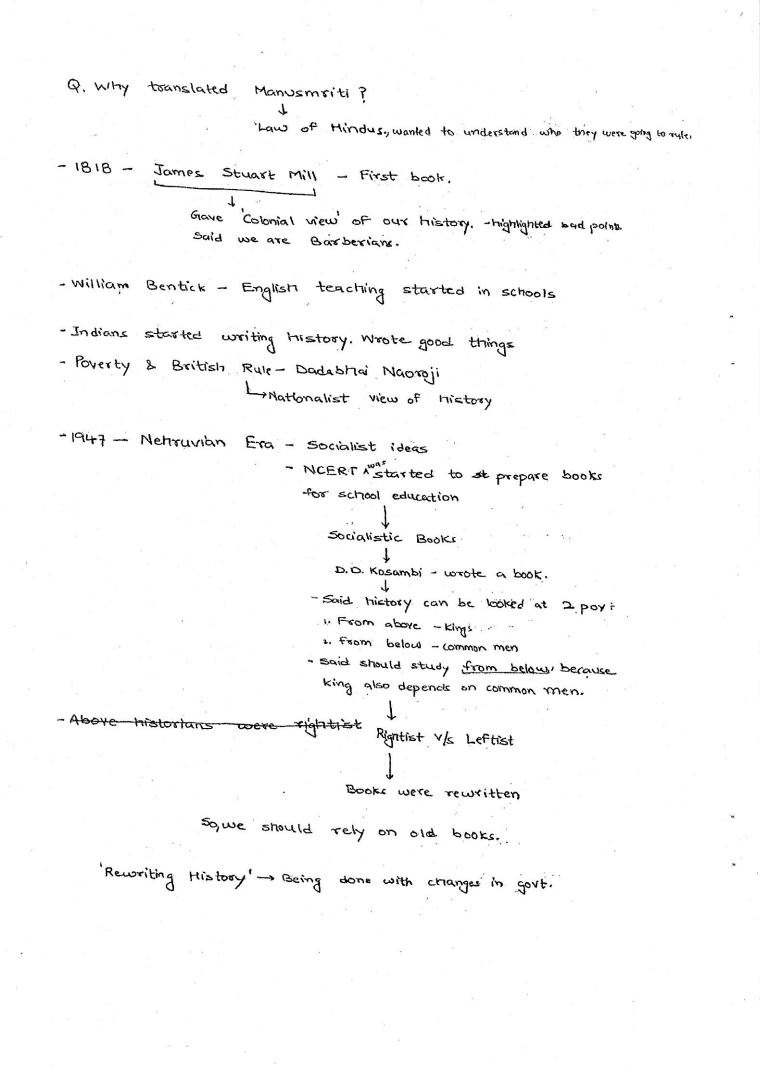 Q. Why translated Manusmriti?
↓
'Law of Hindus, wanted to understand who they were going to rule.
- 1818 - James Stuart Mill - First book.
↓
Gave 'Colonial view' of our history. - highlighted bad points.
Said we are Barberians.
- William Bentick - English teaching started in schools
- Indians started writing history. Wrote good things
- Poverty & British Rule - Dadabhai Naoroji
↳ Nationalist view of history
- 1947 - Nehruvian Era - Socialist ideas
- NCERT ^was started to st prepare books
for school education
↓
Socialistic Books
↓
D.D. Kosambi - wrote a book.
↓
- Said history can be looked at 2 pov:
1. From above - Kings
2. From below - common men
- Said should study from below, because
king also depends on common men.
↓
- Above historians were rightist Rightist v/s Leftist
↓
Books were rewritten
So, we should rely on old books.
'Rewriting History' → Being done with changes in govt.